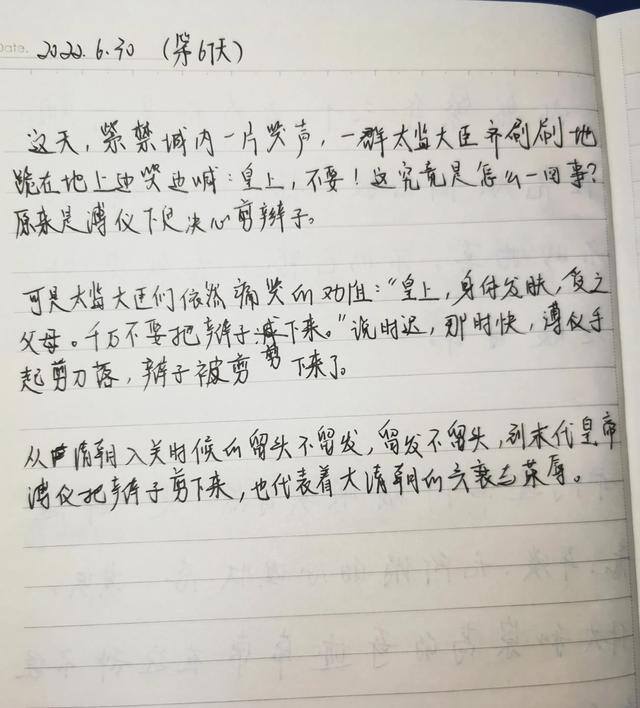 Date. 2022.6.30 (第67天)
这天,紫禁城内一片哭声,一群太监大臣齐刷刷地
跪在地上边哭边喊:皇上,不要!这究竟是怎么一回事?
原来是溥仪下定决心剪辫子。
可是太监大臣们依然痛哭的劝阻:“皇上,身体发肤,受之
父母。千万不要把辫子剪下来。”说时迟,那时快,溥仪手
起剪刀落,辫子被剪下来了。
从清朝入关时候的留头不留发,留发不留头,到末代皇帝
溥仪把辫子剪下来,也代表着大清朝的兴衰与荣辱。